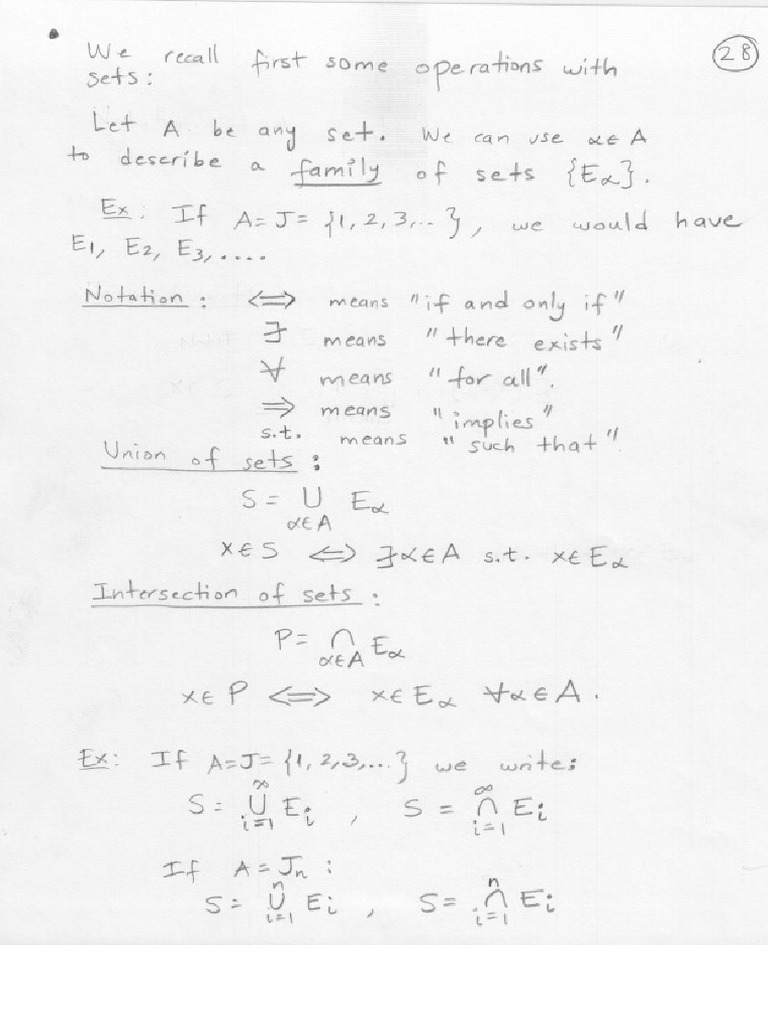 • We recall first some operations with (28)
sets:
Let A be any set. We can use α∈A
to describe a family of sets {Eα}.
Ex: If A=J={1,2,3,..}, we would have
E1, E2, E3,....
Notation: ⟺ means "if and only if"
∃ means "there exists"
∀ means "for all".
⟹ means "implies"
s.t. means "such that".
Union of sets:
S = ∪ Eα
α∈A
x∈S ⟺ ∃α∈A s.t. x∈Eα
Intersection of sets:
P = ∩ Eα
α∈A
x∈P ⟺ x∈Eα ∀α∈A.
Ex: If A=J={1,2,3,...} we write:
∞ ∞
S = ∪ Ei , S = ∩ Ei
i=1 i=1
If A=Jn :
n n
S = ∪ Ei , S = ∩ Ei
i=1 i=1